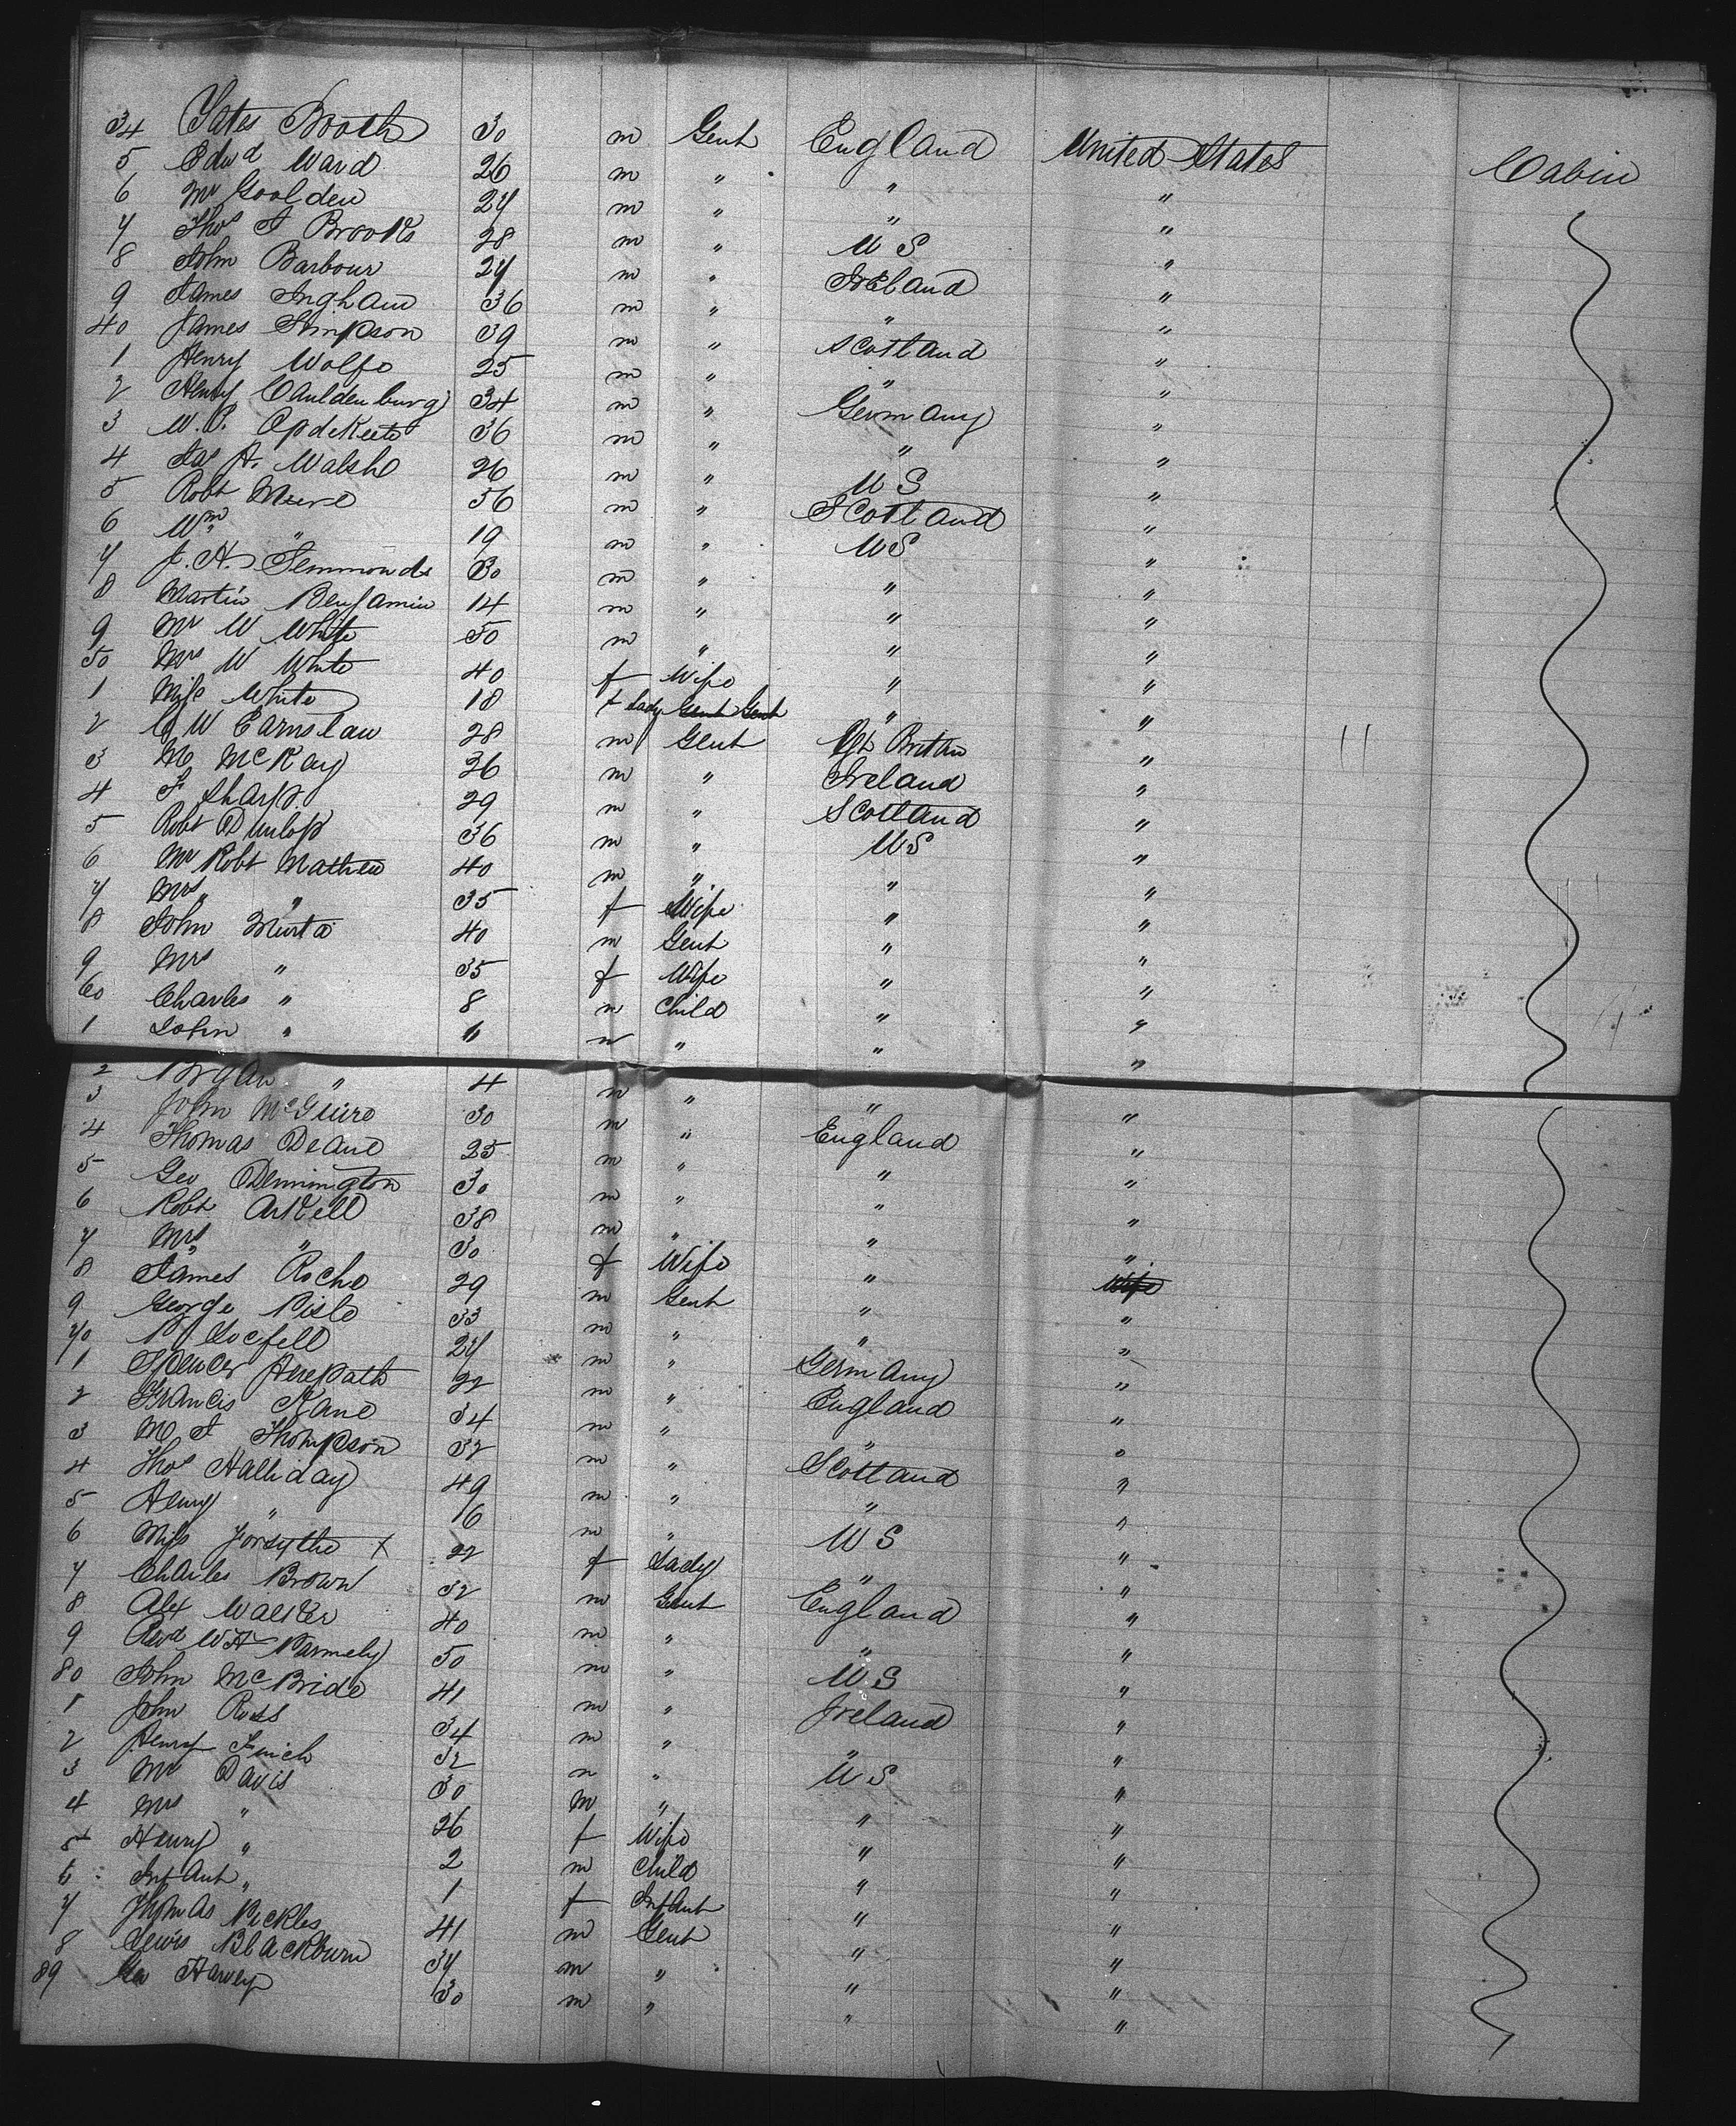 34 Yates Booth 30 m Gent England United States Cabin
5 Edwd Ward 26 m " " "
6 Mr Goolden 24 m " " "
7 Thos A Brooks 28 m " U S "
8 John Barbour 27 m " Ireland "
9 James Ingham 36 m " " "
40 James Simpson 39 m " Scotland "
1 Henry Wolfe 25 m " " "
2 Henry Cauldenburg 34 m " Germany "
3 W. P. 36 m " " "
4 Jas A. Walsh 26 m " U S "
5 Robt 56 m " Scotland "
6 Wm " 19 m " U S "
7 J. H. Semmonds 30 m " " "
8 Martin Benjamin 14 m " " "
9 Mr W White 50 m " " "
50 Mrs W White 40 f Wife " "
1 Miss White 18 f Lady " "
2 G W Earnslaw 28 m Gent Gt Britan "
3 M McKay 36 m " Ireland "
4 F Sharp. 29 m " Scotland "
5 Robt Dunlop 36 m " U S "
6 Mr Robt Mathew 40 m " " "
7 Mrs " " 35 f Wife " "
8 John Murta 40 m Gent " "
9 Mrs " 35 f Wife " "
60 Charles " 8 m Child " "
1 John " m " " "
2 Bryan " 4 m " " "
3 John McGuire 30 m " England "
4 Thomas Deane 25 m " " "
5 Geo Dennington 30 m " " "
6 Robt Arkell 38 m " " "
7 Mrs " " 30 f Wife " "
8 James Roche 29 m Gent " Wife
9 George Pisle 33 m " " "
70 24 m " Germany "
1 Spencer Herepath 22 m " England "
2 Francis Kane 34 m " " "
3 M A Thompson 32 m " Scotland "
4 Thos Halliday 49 m " " "
5 Henry " 16 m " U S "
6 Miss Forsythe x 22 f Lady " "
7 Charles Brown 32 m Gent England "
8 Alex Walker 40 m " " "
9 Revd W H Parmely 50 m " U S "
80 John McBride 41 m " Ireland "
1 John Ross 34 m " " "
2 Henry Finch 32 m " U S "
3 Mr Davis 30 m " " "
4 Mrs " 26 f Wife " "
5 Henry " 2 m Child " "
6 Infant " 1 f Infant " "
7 Thomas Pickles 41 m Gent " "
8 Lewis Blackburn 34 m " " "
89 Geo Harvey 30 m " " "